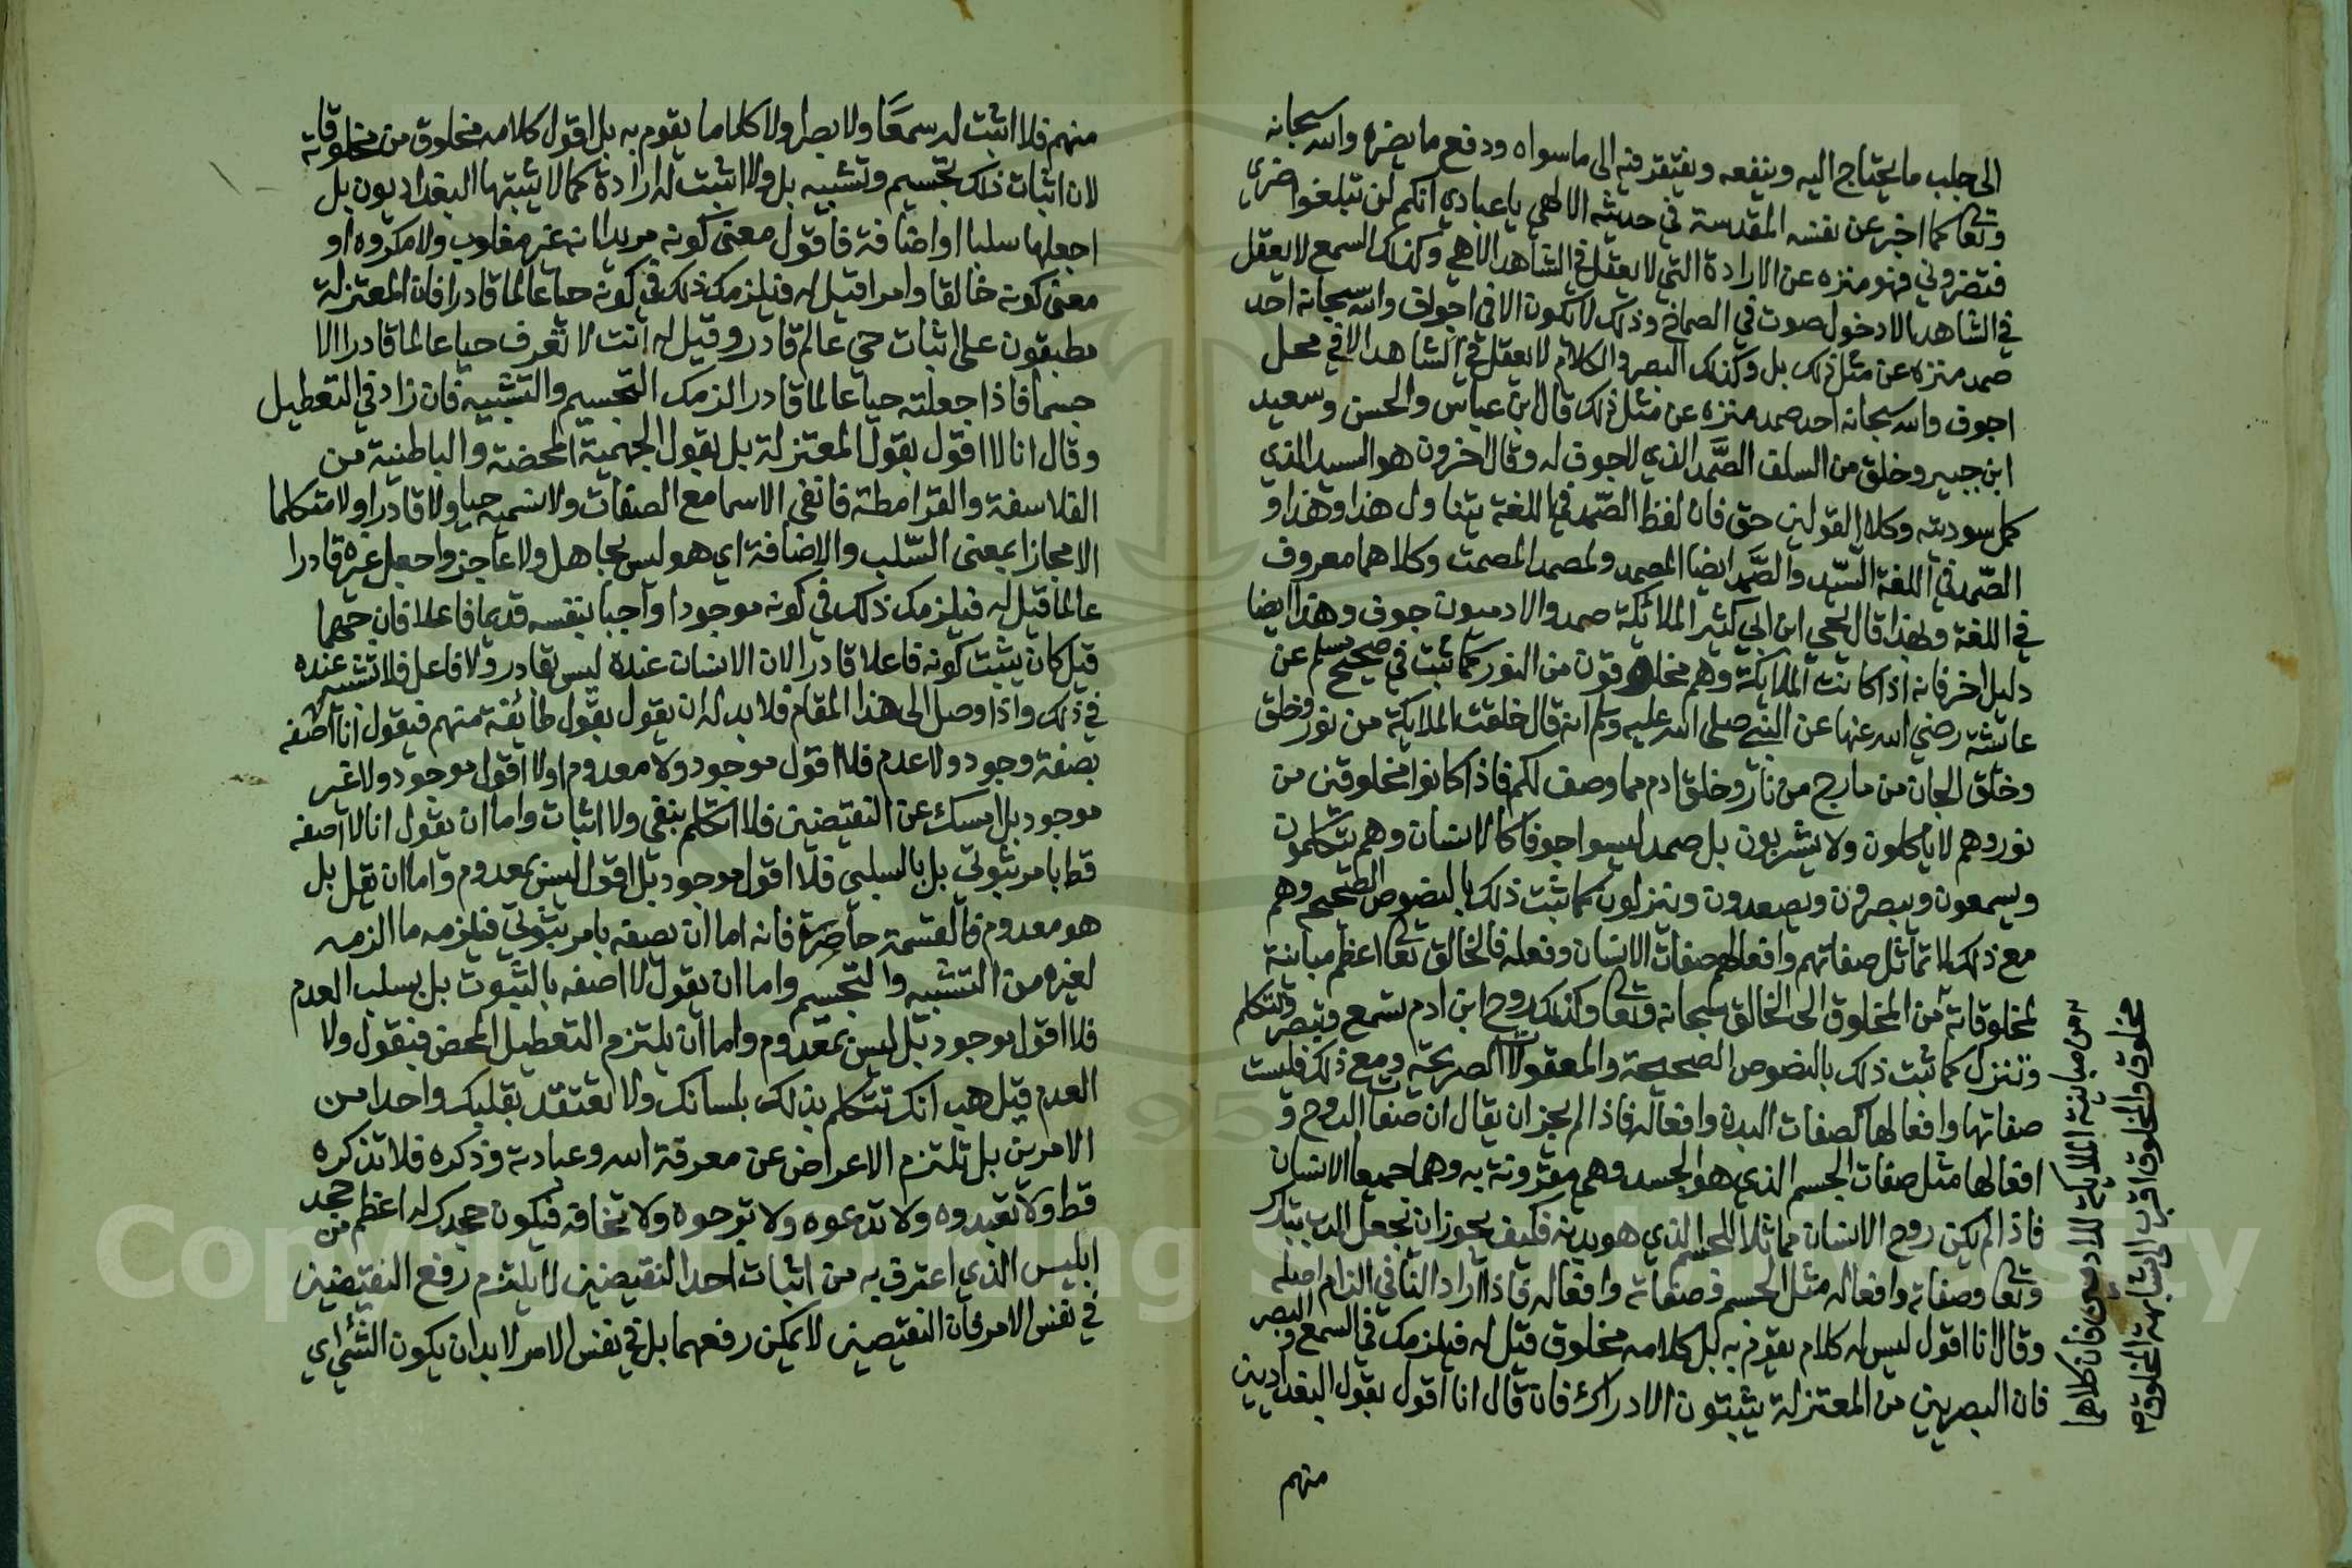 الى جلب ما يحتاج اليه وينفعه ويفتقر فيه الى ما سواه ودفع ما يضره والله سبحانه
وتعالى كما اخبر عن نفسه المقدسة في حديثه الالهي يا عبادي انكم لن تبلغوا ضري
فتضروني فهو منزه عن الارادة التي لا يعقل في الشاهد الا هي وكذلك السمع لا يعقل
في الشاهد الا دخول صوت في الصماخ وذلك لا يكون الا في اجوف والله سبحانه احد
صمد منزه عن مثل ذلك بل وكذلك البصر والكلام لا يعقل في الشاهد الا في محل
اجوف والله سبحانه احد صمد منزه عن مثل ذلك قال ابن عباس والحسن وسعيد
ابن جبير وخلق من السلف الصمد الذي لا جوف له وقال اخرون هو السيد الذي
كمل سوديته وكلا القولين حق فان لفظ الصمد في اللغة يتناول هذا وهذا و
الصمد في اللغة السيد والصمد ايضا المصمد ولمصمد المصمت وكلاهما معروف
في اللغة ولهذا قال يحيى ابن ابي كثير الملائكة صمد والادميون جوف وهذا ايضا
دليل اخر فانه اذا كانت الملايكة وهم مخلوقون من النور كما ثبت في صحيح مسلم عن
عايشة رضي الله عنها عن النبي صلى الله عليه وسلم انه قال خلقت الملايكة من نور وخلق
وخلق الجان من مارج من نار وخلق ادم مما وصف لكم فاذا كانوا مخلوقين من
نور وهم لا ياكلون ولا يشربون بل صمد ليسوا جوفا كالانسان وهم يتكلمون
ويسمعون ويبصرون ويصعدون وينزلون كما ثبت ذلك بالنصوص الصحيحه وهم
مع ذلك لا تماثل صفاتهم وافعالهم صفات الانسان وفعله فالخالق تعالى اعظم مباينة
لمخلوقاته من المخلوق الى الخالق سبحانه وتعالى وكذلك روح ابن ادم تسمع وتبصر وتتكلم
وتنزل كما ثبت ذلك بالنصوص الصحيحة والمعقولات الصريحة ومع ذلك فليست
صفاتها وافعالها كصفات البدن وافعاله فاذا لم يجز ان يقال ان صفات الروح و
افعالها مثل صفات الجسم الذي هو الجسد وهي مقرونة به وهما جميعا الانسان
فاذا لم يكن روح الانسان مماثلا للجسم الذي هو بدنه فكيف يجوز ان تجعل الرب تبارك
وتعالى وصفاته وافعاله مثل الجسم وصفاته وافعاله فاذا اراد النافي التزام اصله
وقال انا اقول ليس له كلام يقوم به بل كلامه مخلوق قيل له فيلزمك في السمع والبصر
فان البصريين من المعتزلة يثبتون الادراك فان قال انا اقول بقول البغداديين
منهم
من مباينة الملايكة للادميين فان كلاهما
مخلوق والمخلوق اقرب الى مشابهة المخلوق
منهم فلا اثبت له سمعا ولا بصرا ولا كلاما يقوم به بل اقول كلامه مخلوق من مخلوقاته
لان اثبات ذلك تجسيم وتشبيه بل ولا اثبت له ارادة كما لا يثبتها البغداديون بل
اجعلها سلبا او اضافة فاقول معنى كونه مريدا انه غير مغلوب ولا مكروه او
معنى كونه خالقا وامرا قيل له فيلزمك ذلك في كونه حيا عالما قادرا فان المعتزلة
مطبقون على اثبات حي عالم قادر وقيل له انت لا تعرف حيا عالما قادرا الا
جسما فاذا جعلته حيا عالما قادرا لزمك التجسيم والتشبيه فان زاد في التعطيل
وقال انا لا اقول بقول المعتزلة بل بقول الجهمية المحضة والباطنية من
الفلاسفة والقرامطة فانفي الاسما مع الصفات ولا اسميه حيا ولا قادرا ولا متكلما
الا مجازا بمعنى السلب والاضافة اي هو ليس بجاهل ولا عاجز واجعل غيره قادرا
عالما قيل له فيلزمك ذلك في كونه موجودا واجبا بنفسه قديما فاعلا فان جهما
قيل كان يثبت كونه فاعلا قادرا لان الانسان عنده ليس بقادر ولا فاعل فلا تشبيه عنده
في ذلك واذا وصل الى هذا المقام فلا بد له ان يقول بقول طائفة منهم فيقول انا اصفه
بصفة وجود ولا عدم فلا اقول موجود ولا معدوم او لا اقول موجود ولا غير
موجود بل امسك عن النقيضين فلا اتكلم بنفي ولا اثبات واما ان يقول انا لا اصفه
قط بامر ثبوتي بل بالسلبي فلا اقول موجود بل اقول ليس بمعدوم واما ان يقل بل
هو معدوم فالقسمة حاصرة فانه اما ان يصفه بامر ثبوتي فيلزمه ما الزمه
لغيره من التشبيه والتجسيم واما ان يقول لا اصفه بالثبوت بل بسلب العدم
فلا اقول موجود بل ليس بمعدوم واما ان يلتزم التعطيل المحض فيقول ولا
العدم قيل هب انك تتكلم بذلك بلسانك ولا تعتقد بقلبك واحدا من
الامرين بل تلتزم الاعراض عن معرفة الله وعبادته وذكره فلا تذكره
قط ولا تعبدوه ولا تدعوه ولا ترجوه ولا تخافه فيكون جحدك له اعظم من جحد
ابليس الذي اعترف به من اثبات احد النقيضين لا يلتزم رفع النقيضين
في نفس الامر فان النقيضين لا يمكن رفعهما بل في نفس الامر لا بد ان يكون الشئ اي
Copyright © King S University